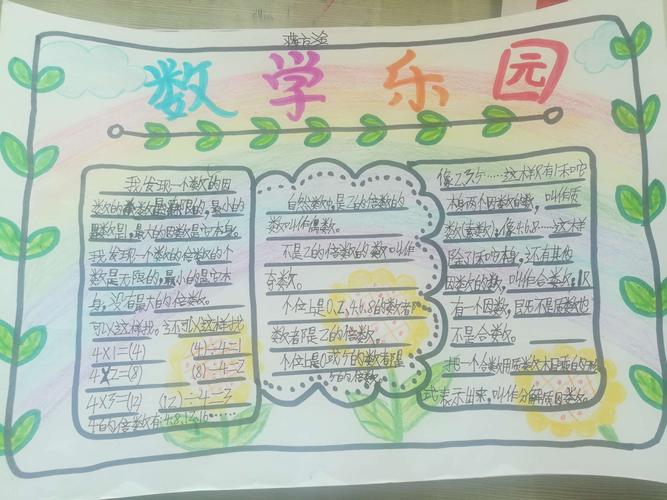 数学乐园
我发现一个数的因
数的个数是有限的,最小的
因数是1,最大的因数是它本身。
我发现一个数的倍数的个
数是无限的,最小的是它本
身,没有最大的倍数。
可以这样找。亦可以这样找
4×1=(4) (4)÷4=1
4×2=(8) (8)÷4=2
4×3=(12) (12)÷4=3
4的倍数有:4.8.12.16……
自然数中,是2的倍数的
数叫作偶数。
不是2的倍数的数叫作
奇数。
个位上是0.2.4.6.8的数者
数者都是2的倍数。
个位上是0或5的数者都是
5的倍数。
像2.3.5……这样仅有1和它
本身两个因数的数,叫作质
数(素数);像4.6.8……这样
除了1和它本身,还有其他
因数的数,叫作合数,1只
有一个因数,既不是质数也
不是合数。
把一个合数用质数相乘的形
式表示出来,叫作分解质因数。